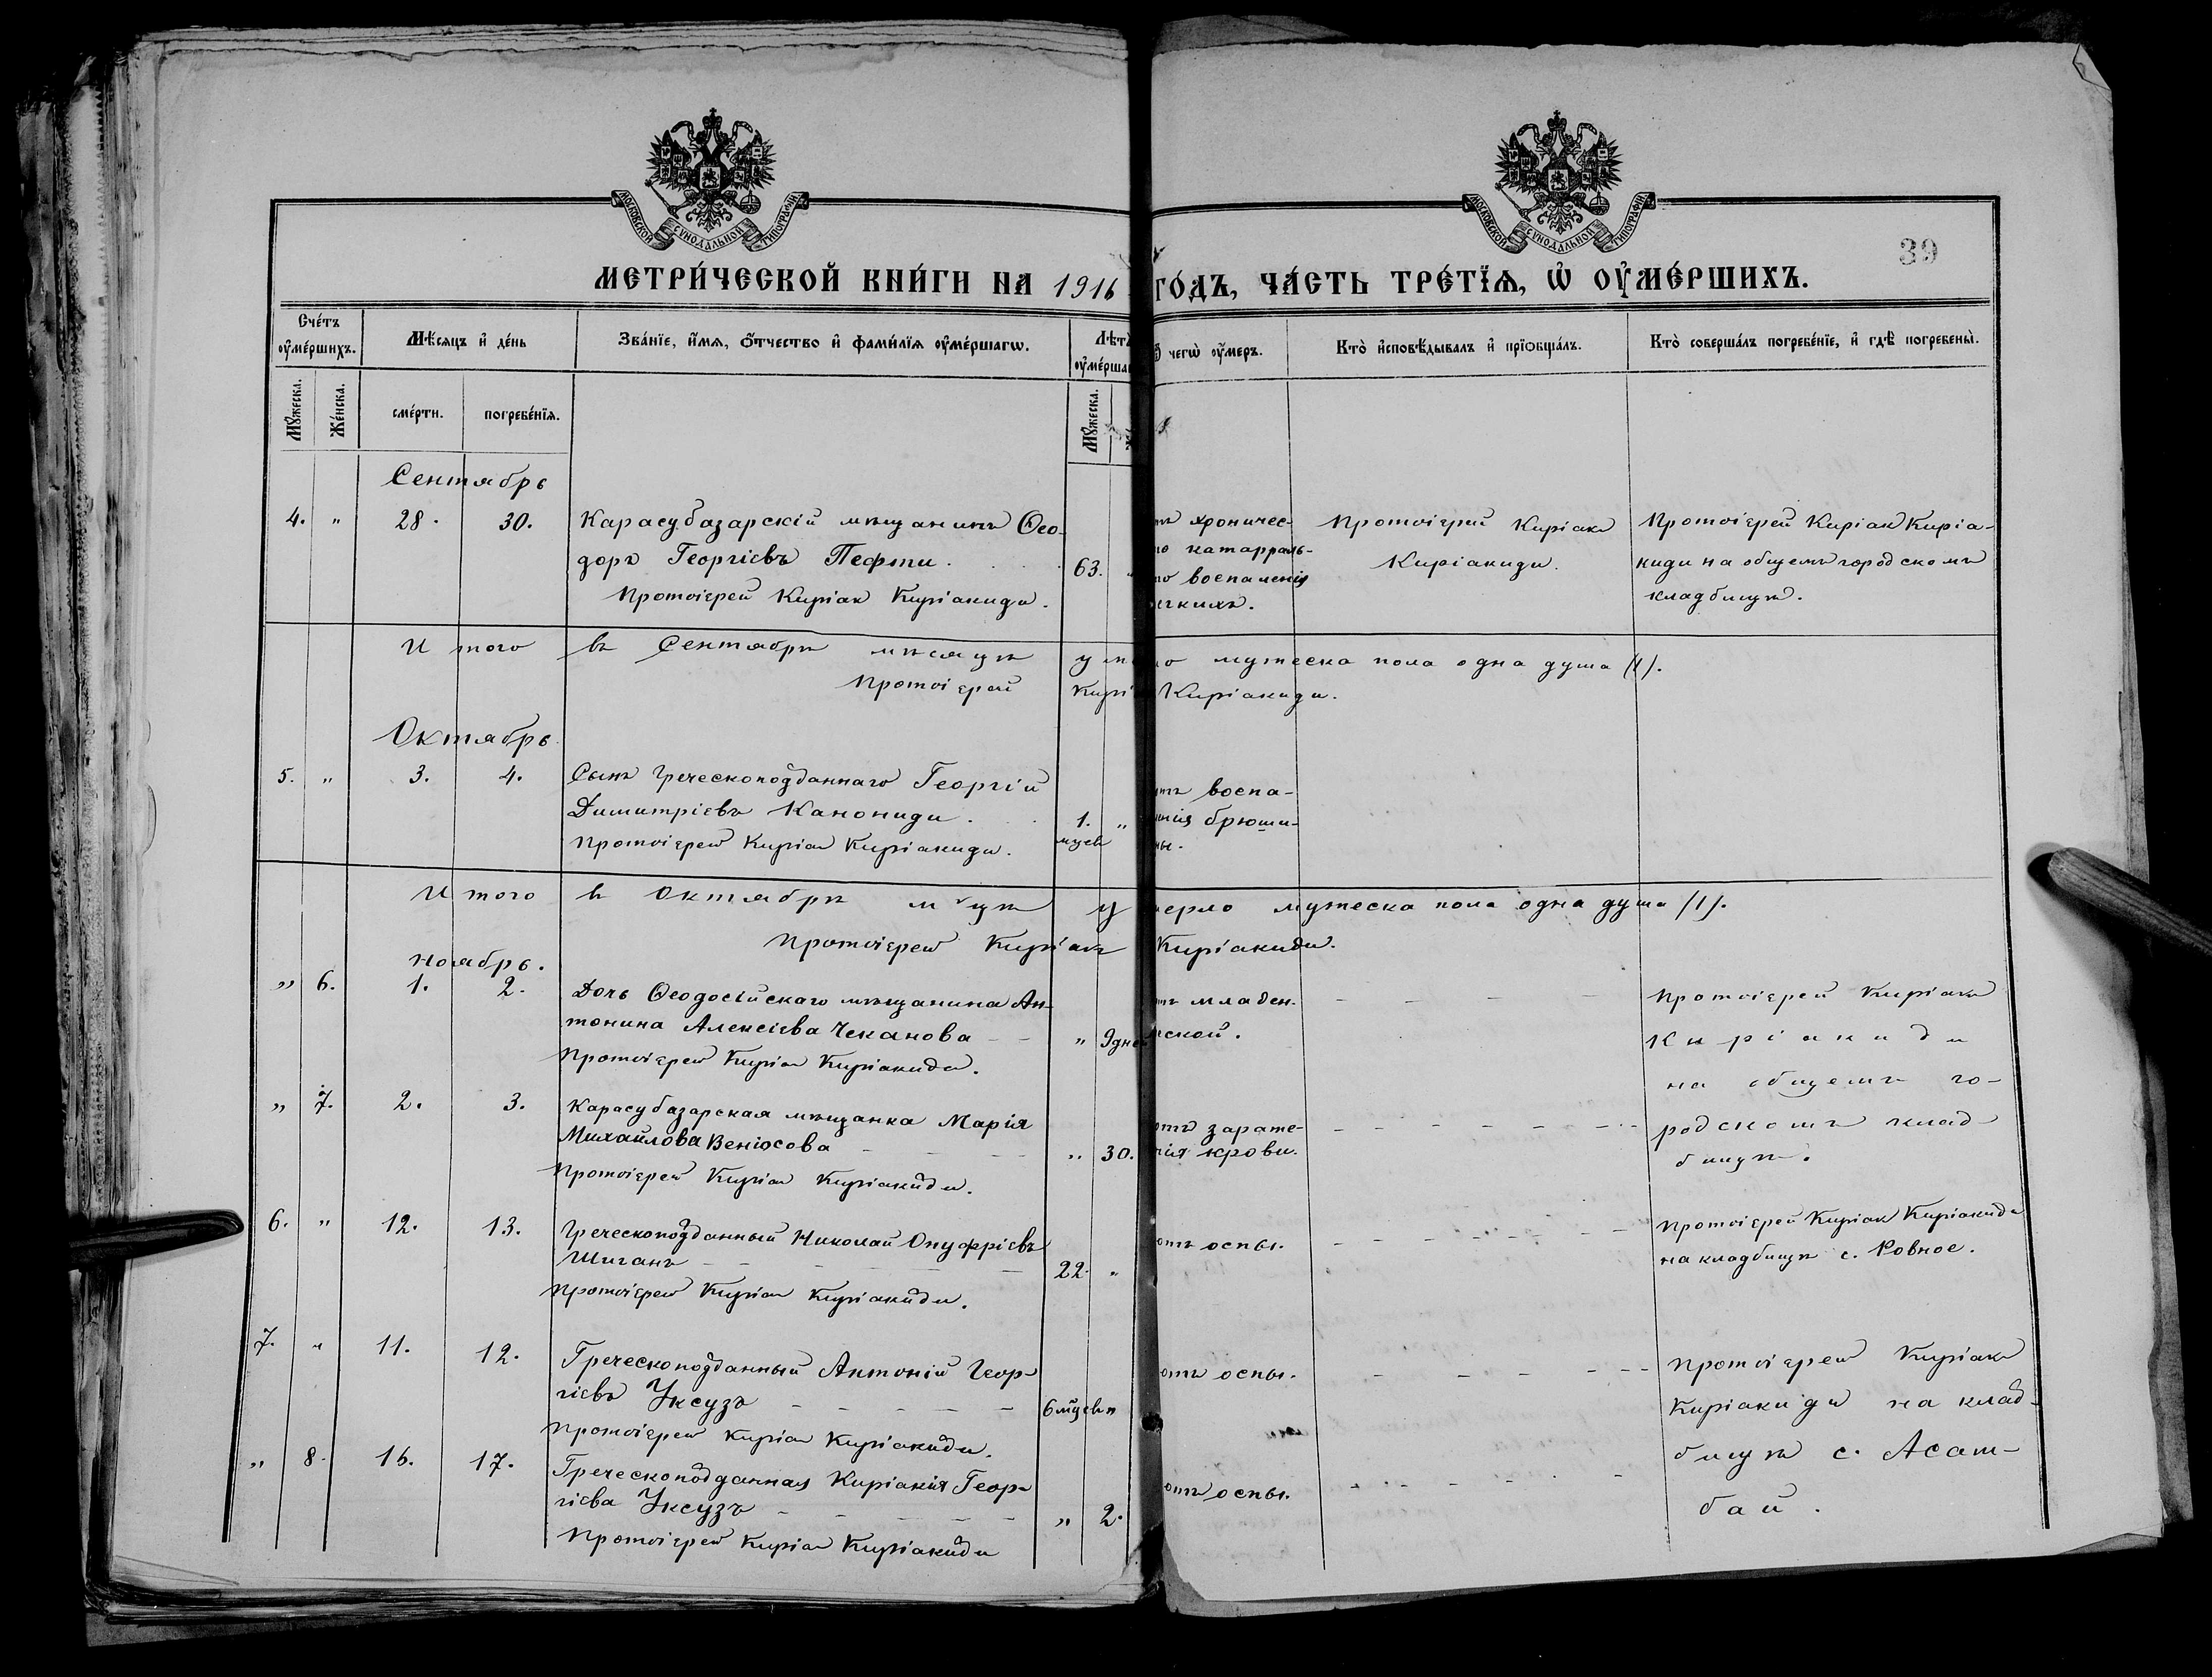 МОСКОВСКОЙ СУНОДАЛЬНОЙ ТИПОГРАФІИ
МОСКОВСКОЙ СУНОДАЛЬНОЙ ТИПОГРАФІИ
39
МЕТРИ́ЧЕСКОЙ КНИ́ГИ НА 1916 ГО́ДЪ, ЧА́СТЬ ТРЕ́ТЇѦ, Ѡ҆ ОУ҆МЕ́РШИХЪ.
Сче́тъ оу҆ме́ршихъ.
Мѣ́сѧцъ и҆ де́нь
Зва́нїе, и҆́мѧ, ѻ҆́тчество и҆ фами́лїѧ оу҆ме́ршагѡ.
Лѣт
оу҆ме́рша
чегѡ̀ оу҆́мер.
Кто̀ и҆сповѣ́дывалъ и҆ прїѡбща́лъ.
Кто̀ соверша́лъ погребе́нїе, и҆ гдѣ̀ погребены̀.
Мꙋ́жеска.
Же́нска.
сме́рти.
погребе́нїѧ.
Мꙋ́жеска.
Сентябрь
4. " 28. 30. Карасубазарскій мѣщанинъ Ѳео-
доръ Георгіевъ Пефти. 63. "
Протоіерей Киріак Киріакиди.
хроничес-
катарраль-
воспаленія
легкихъ.
Протоіерей Киріакъ
Киріакиди.
Протоіерей Киріак Киріа-
киди на общемъ городскомъ
кладбищѣ.
Итого въ Сентябрѣ мѣсяцѣ умерло мужеска пола одна душа (1).
Протоіерей Киріакъ Киріакиди.
Октябрь
5. " 3. 4. Сынъ греческоподданнаго Георгій
Димитріевъ Канониди. 1. "
Протоіерей Киріак Киріакиди. мцев
отъ воспа-
ленія брюши-
ны.
Итого въ Октябрѣ мцѣ умерло мужеска пола одна душа (1).
Протоіерей Киріакъ Киріакиди.
Ноябрь.
" 6. 1. 2. Дочь Ѳеодосійскаго мѣщанина Ан-
тонина Алексіева Чеканова " 9 дней
Протоіерей Киріак Киріакиди.
отъ младен-
ческой.
Протоіерей Киріакъ
Киріакиди
на общемъ го-
родскомъ клад-
бищѣ.
" 7. 2. 3. Карасубазарская мѣщанка Марія
Михайлова Веніосова " 30.
Протоіерей Киріак Киріакиди.
отъ зараже-
нія крови.
6. " 12. 13. Греческоподданный Николай Онуфріевъ
Шиганъ 22. "
Протоіерей Киріак Киріакиди.
отъ оспы.
Протоіерей Киріак Киріакиди
на кладбищѣ с. Ровное.
7. " 11. 12. Греческоподданный Антоній Геор-
гіевъ Уксузъ 6 мцевъ "
Протоіерей Киріак Киріакиди.
отъ оспы.
Протоіерей Киріакъ
Киріакиди на клад-
бищѣ с. Асат-
бай.
" 8. 16. 17. Греческоподданная Киріакія Геор-
гіева Уксузъ " 2.
Протоіерей Киріак Киріакиди
отъ оспы.